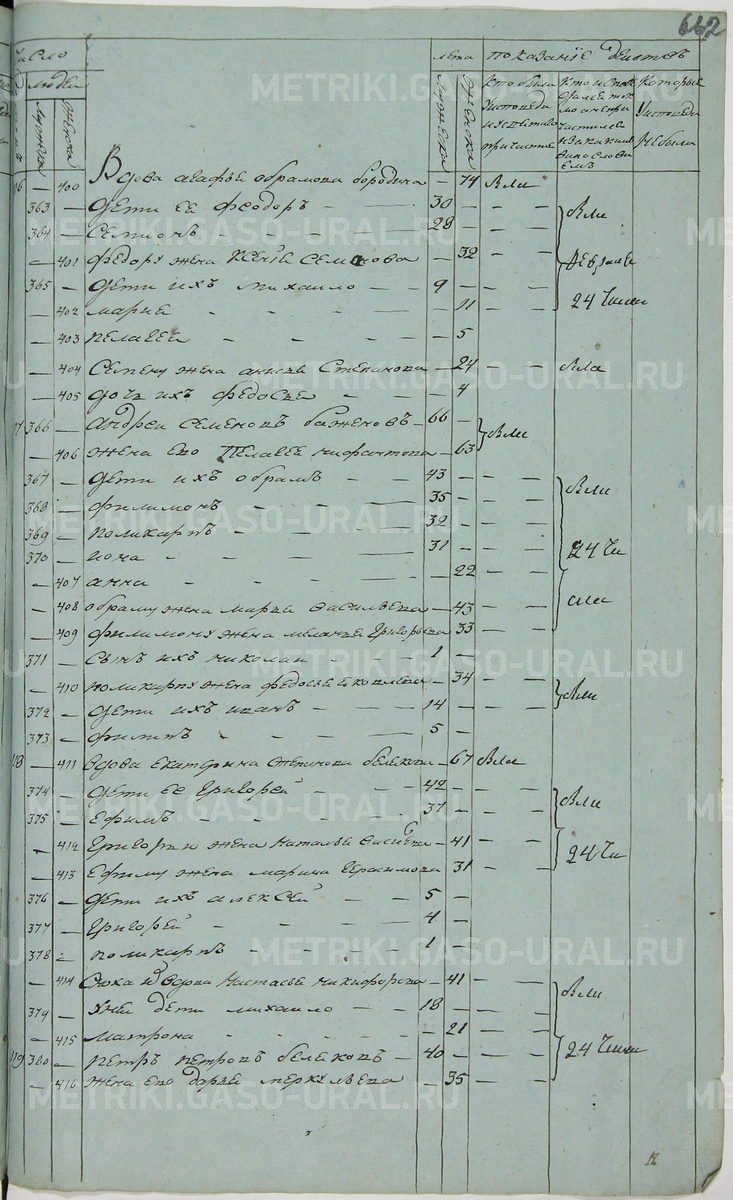 642
число лета показание действъ
людей
мужска женска мужска женска
Кто были у исповеди и святаго причастия
Кто исповедался токмо а не причастился и за какимъ винословиемъ
Которые у исповеди не были
116 — 400 Вдова агафья обрамова бородина — 74 Были
363 — дети ее феодоръ — 30 — —
364 — Семионъ — 28 — —
— 401 федору жена Ксения Семенова — 32 — — были февраля 24 числа
365 — дети ихъ михаило — 9 — —
— 402 мария — 11 — —
— 403 пелагея — 5
— 404 Семену жена Степанова — 24 — — была
— 405 дочь ихъ федосья — 4
117 366 — андреи семеновъ баженовъ — 66 — Были
— 406 жена ево пелагея нифантова — 63
367 — дети ихъ обрамъ — 43 — — были
368 — филимонъ — 35 — —
369 — поликарпъ — 32 — —
370 — иона — 31 — — 24 чи
— 407 анна — 22 — —
— 408 обраму жена марья васильева — 43 — — сла
— 409 филимону жена меланья григорьева — 33 — —
371 — сынъ ихъ николаи — 1 —
— 410 поликарпу жена федосья яковлева — 34 — — были
372 — дети ихъ иванъ — 14 — —
373 — филипъ — 5 —
118 — 411 вдова екатерина степанова белекова — 67 Была
374 — дети ее григорей — 42 — —
375 — Ефимъ — 37 — — были
— 412 григорьи жена наталья васильева — 41 — — 24 чи
— 413 Ефиму жена марина герасимова — 31 — —
376 — дети ихъ алексей — 5 —
377 — григорей — 4 —
378 — поликарпъ — 1 —
— 414 Сноха вдова настасья никифорова — 41 — — были
379 — у неи дети михаило — 18 — —
— 415 матрона — 21 — —
119 380 — петръ петровъ белековъ — 40 — — 24 числа
— 416 жена ево дарья меркульева — 35 — —
METRIKI.GASO-URAL.RU